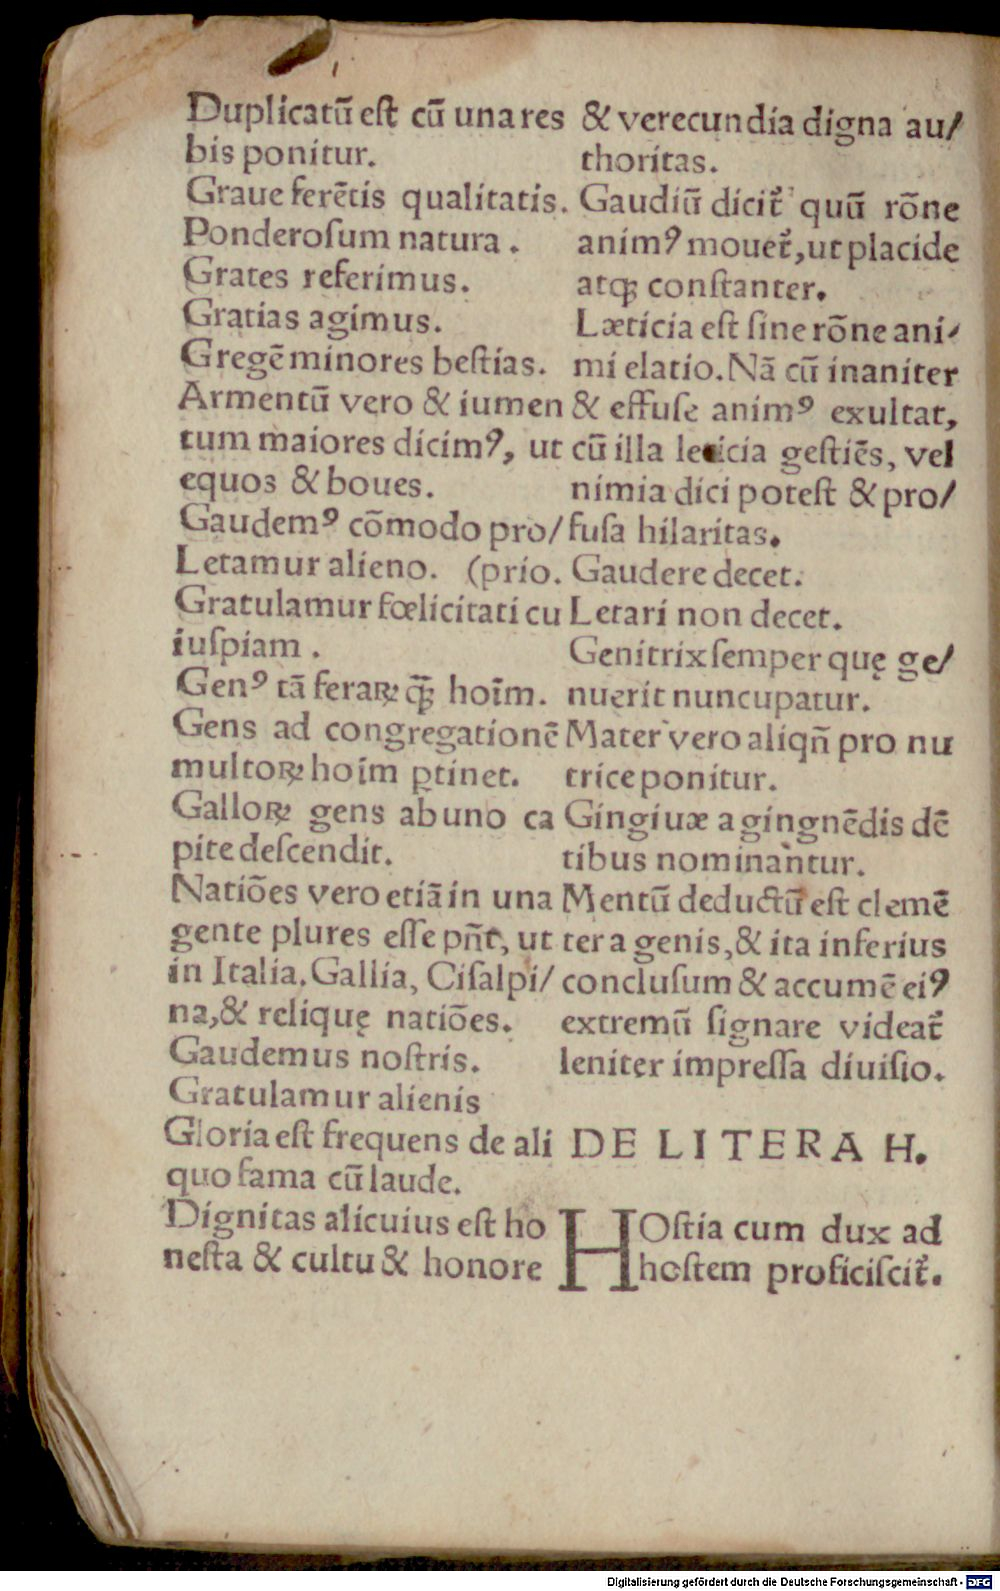 Duplicatū eſt cū una res
bis ponitur.
Graue ferētis qualitatis.
Ponderoſum natura .
Grates referimus.
Gratias agimus.
Gregē minores beſtias.
Armentū vero & iumen
tum maiores dicimꝰ, ut
equos & boues.
Gaudemꝰ cōmodo pro/
Letamur alieno. (prio.
Gratulamur fœlicitati cu
iuſpiam .
Genꝰ tā feraꝝ q̄ꝫ hoīm.
Gens ad congregationē
multoꝝ hoīm ꝑtinet.
Galloꝝ gens ab uno ca
pite deſcendit.
Natiōes vero etiā in una
gente plures eſſe pn̄t, ut
in Italia. Gallia, Ciſalpi/
na,& reliquę natiōes.
Gaudemus noſtris.
Gratulamur alienis
Gloria eſt frequens de ali
quo fama cū laude.
Dignitas alicuius eſt ho
neſta & cultu & honore
& verecundia digna au/
thoritas.
Gaudiū dicit᷑ quū rōne
animꝰ mouet᷑,ut placide
atqꝫ conſtanter.
Læticia eſt ſine rōne ani/
mi elatio. Nā cū inaniter
& effuſe animꝰ exultat,
cū illa leticia geſtiēs, vel
nimia dici poteſt & pro/
fuſa hilaritas.
Gaudere decet.
Letari non decet.
Genitrix ſemper quę ge/
nuerit nuncupatur.
Mater vero aliqn̄ pro nu
trice ponitur.
Gingiuæ a gingnēdis dē
tibus nominantur.
Mentū deductū eſt clemē
ter a genis,& ita inferius
concluſum & accumē eiꝰ
extremū ſignare videat᷑
leniter impreſſa diuiſio.
DE LITERA H.
HOſtia cum dux ad
hoſtem proficiſcit᷑.
Digitalisierung gefördert durch die Deutsche Forschungsgemeinschaft - DFG